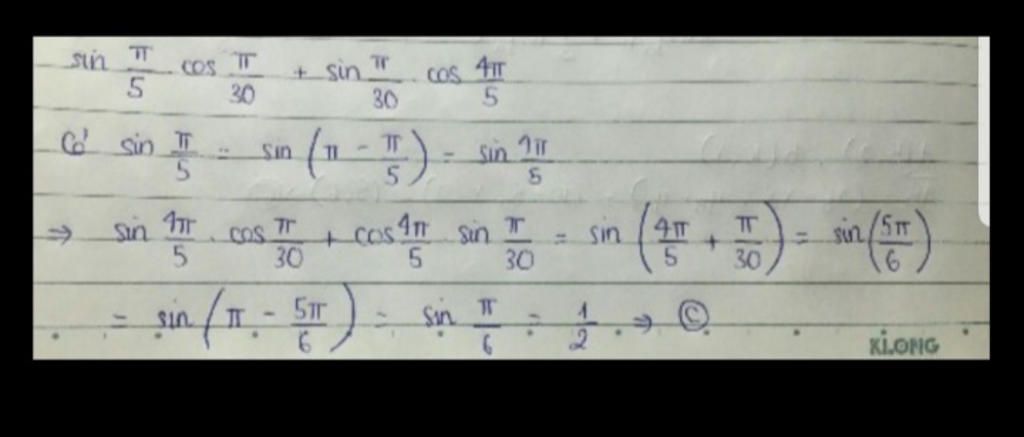 sin π/5 . cos π/30 + sin π/30 . cos 4π/5
Có sin π/5 = sin (π - π/5) = sin 4π/5
⇒ sin 4π/5 . cos π/30 + cos 4π/5 . sin π/30 = sin (4π/5 + π/30) = sin (5π/6)
= sin (π - 5π/6) = sin π/6 = 1/2 . ⇒ Ⓒ
KLONG